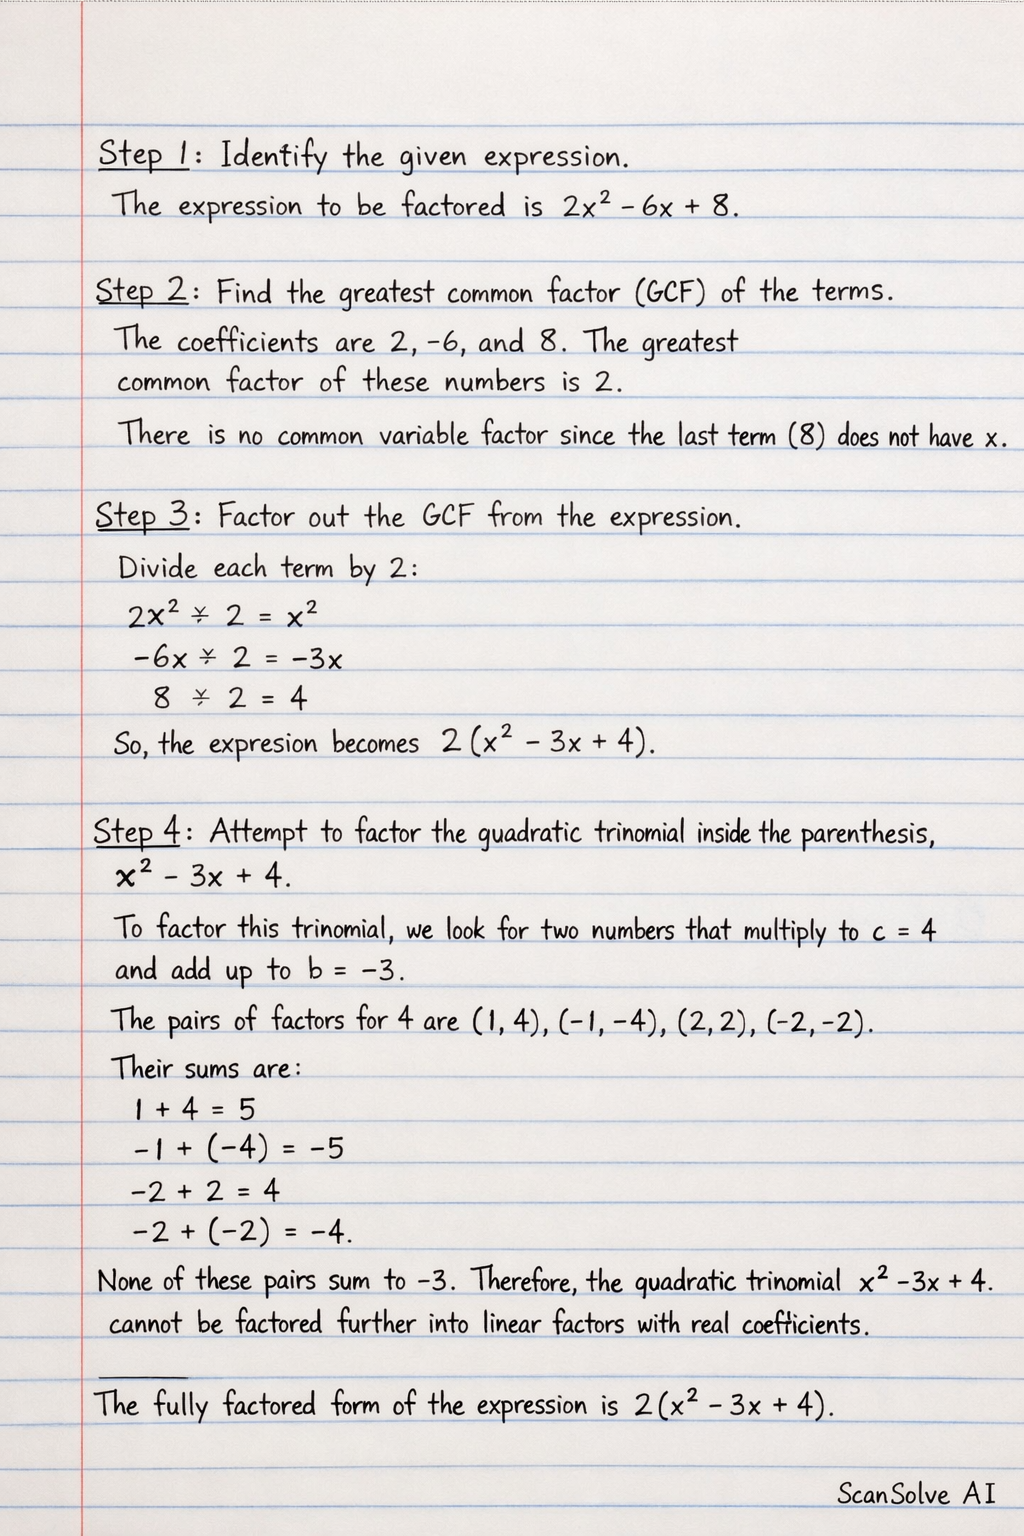 Step 1: Identify the given expression.
The expression to be factored is 2x² - 6x + 8.
Step 2: Find the greatest common factor (GCF) of the terms.
The coefficients are 2, -6, and 8. The greatest
common factor of these numbers is 2.
There is no common variable factor since the last term (8) does not have x.
Step 3: Factor out the GCF from the expression.
Divide each term by 2:
2x² ÷ 2 = x²
-6x ÷ 2 = -3x
8 ÷ 2 = 4
So, the expresion becomes 2 (x² - 3x + 4).
Step 4: Attempt to factor the quadratic trinomial inside the parenthesis,
x² - 3x + 4.
To factor this trinomial, we look for two numbers that multiply to c = 4
and add up to b = -3.
The pairs of factors for 4 are (1, 4), (-1, -4), (2, 2), (-2, -2).
Their sums are:
1 + 4 = 5
-1 + (-4) = -5
-2 + 2 = 4
-2 + (-2) = -4.
None of these pairs sum to -3. Therefore, the quadratic trinomial x² - 3x + 4.
cannot be factored further into linear factors with real coefficients.
The fully factored form of the expression is 2(x² - 3x + 4).
ScanSolve AI